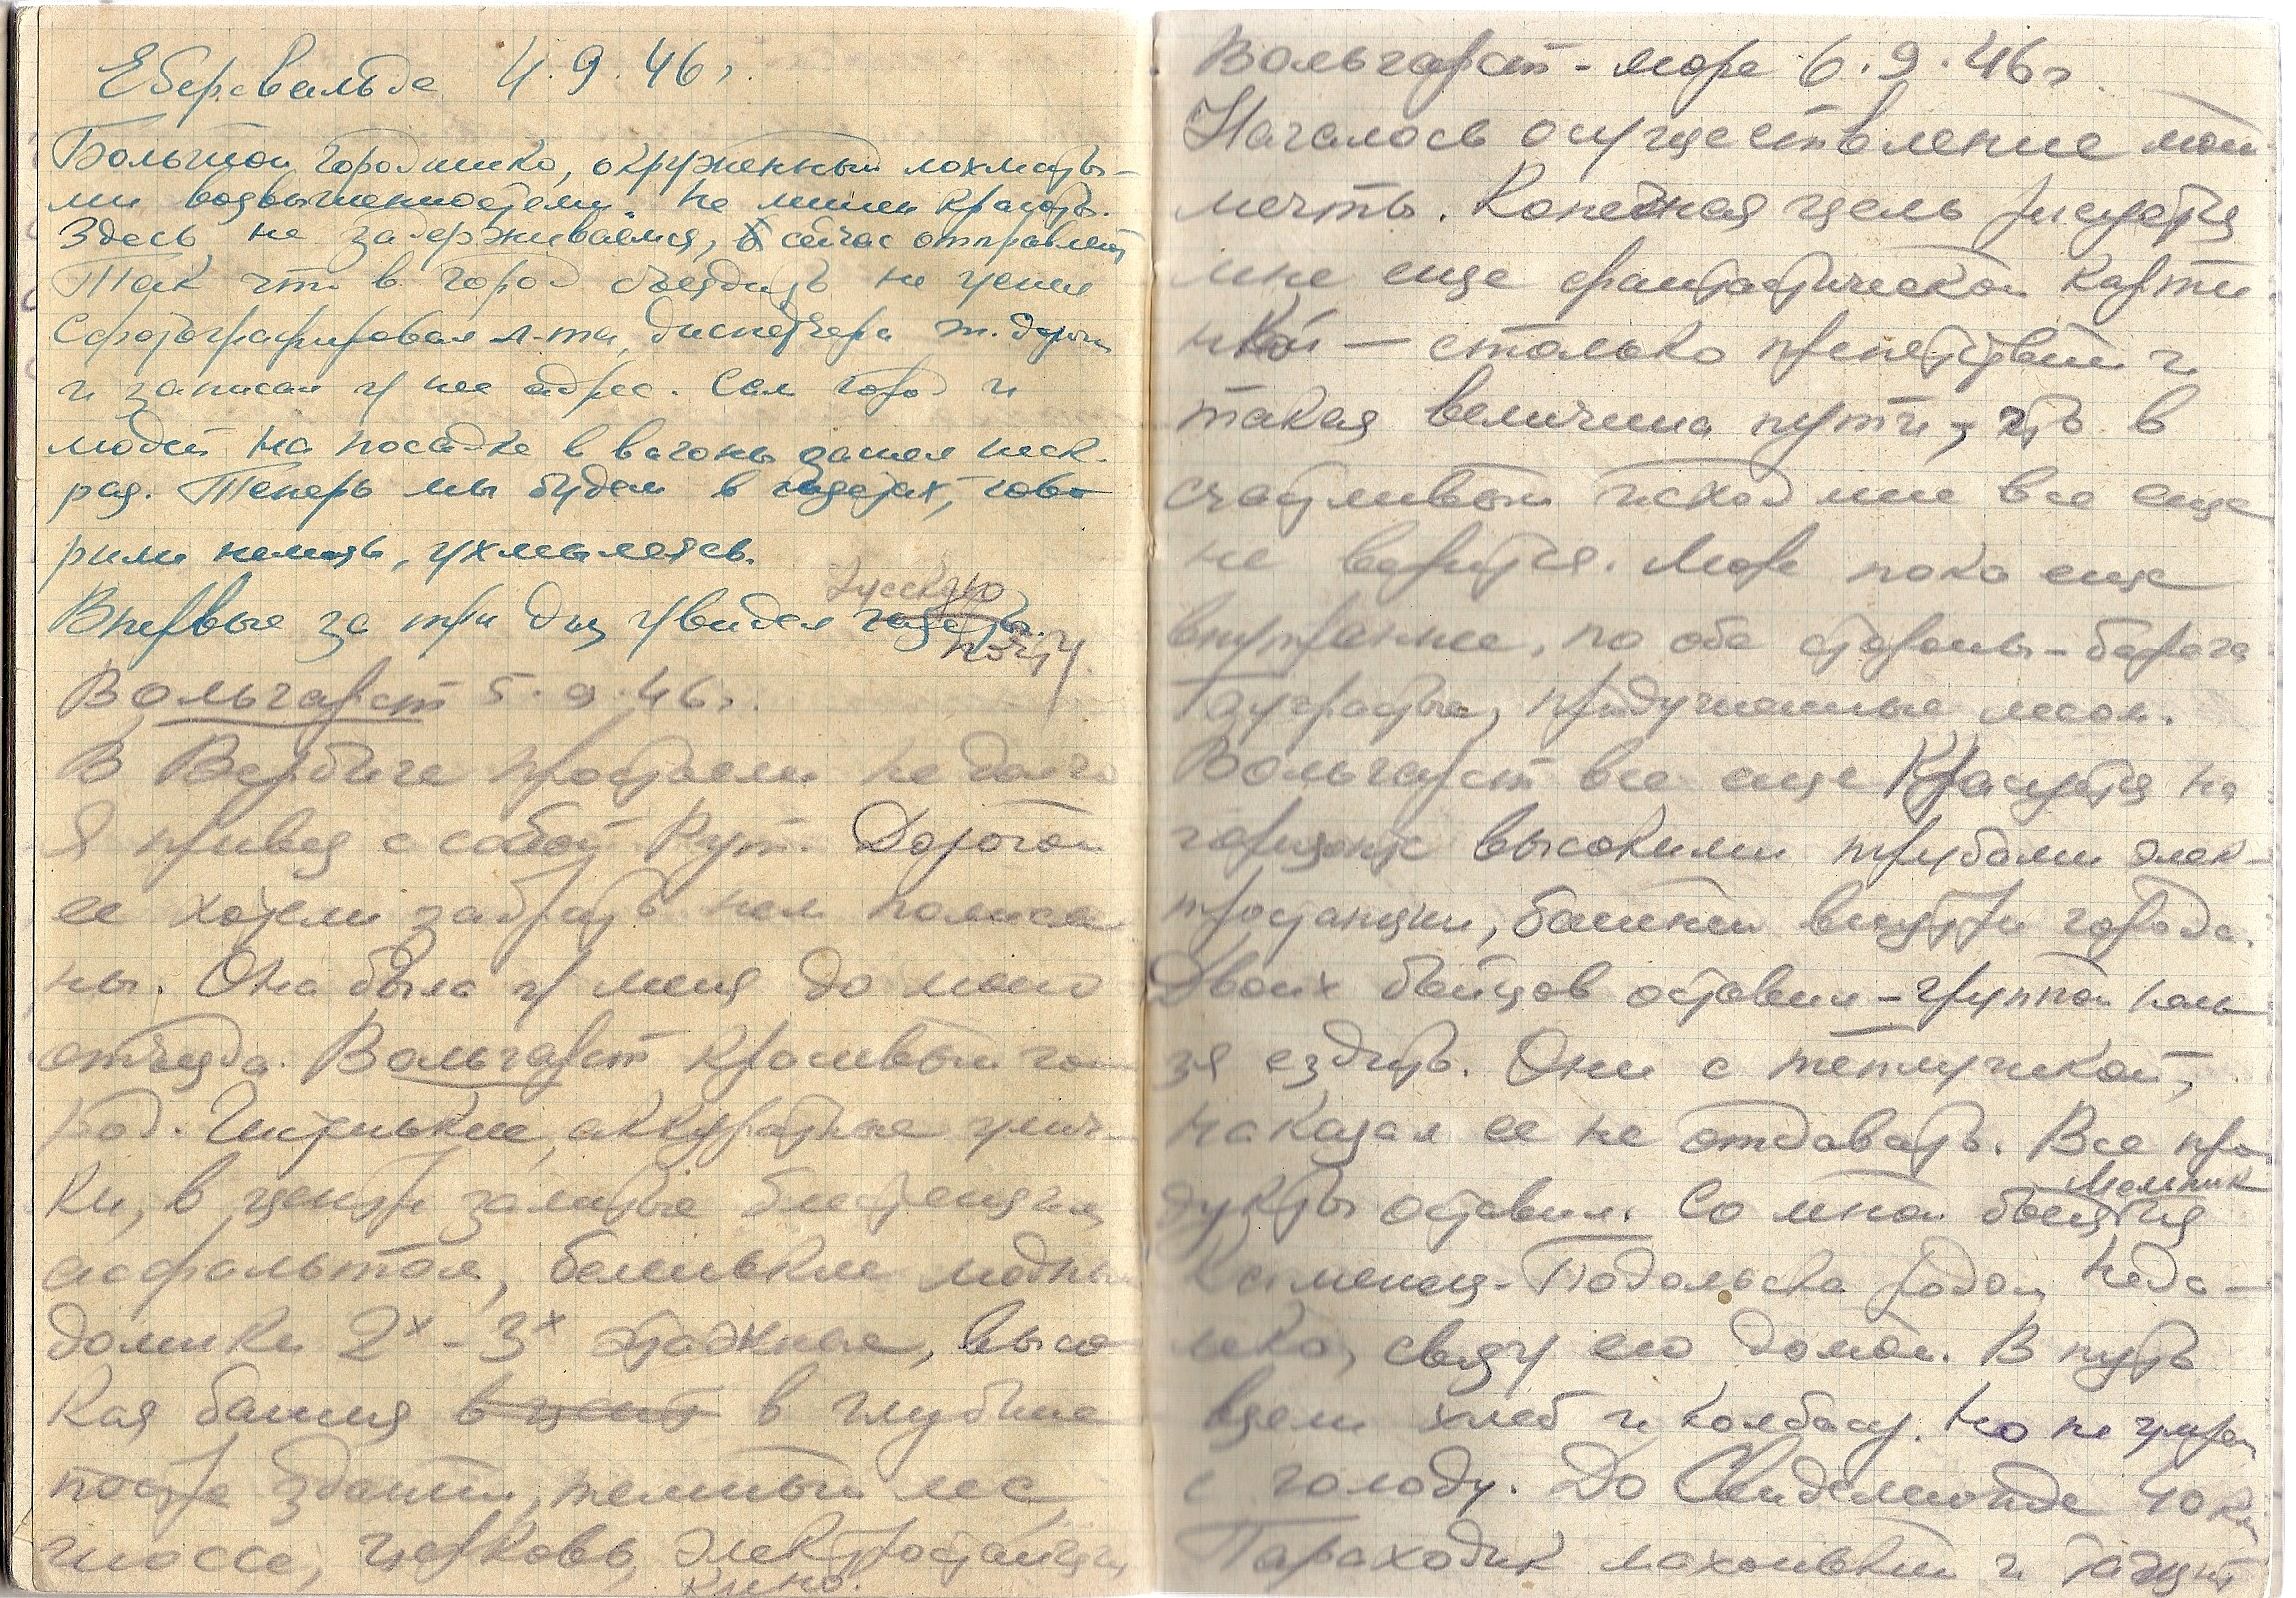 Еберсвальде 4.9.46 г.
Большой городишко, окруженный лохматы-
ми возвышенностями. Не лишен красоты.
Здесь не задерживаемся, сейчас отправляют
Так что в город съездить не успел
Сфотографировал л-та, диспетчера ж. дороги
и записал у нее адрес. Сам город и
людей на посадке в вагоны заснял неск.
раз. Теперь мы будем в газетах, гово-
рили немцы, ухмыляясь.
Русскую
Впервые за три дня увидел газеты.
почту.
Вольгарст 5.9.46 г.
В Вербиге простояли не долго
Я привез с собой Рут. Дорогой
ее хотели забрать нем. полисме-
ны. Она была у меня до моего
отъезда. Вольгарст красивый го-
род. Чистенькие, аккуратные улич-
ки, в центре залитые блестящим
асфальтом, беленькие модные
домики 2х-3х этажные, высо-
кая башня в цент в глубине
пострe зданий, темный лес,
шоссе, церковь, электростанция,
кино.
Вольгарст - море 6.9.46 г.
Началось осуществление моей
мечты. Конечная цель рисуется
мне еще фантастической карти-
нкой — столько препятствий и
такая величина пути, что в
счастливый исход мне все еще
не верится. Море пока еще
внутреннее, по обе стороны - берега
, придушенные лесом.
Вольгарст все еще красуется на
горизонте высокими трубами элек-
тростанции, башней внутри города.
Двоих бойцов оставил - группой нель-
зя ездить. Они с теплушкой,
наказал ее не отдавать. Все про-
дукты оставил. Со мной боец Мельник
из
Каменец-Подольска родом. Неда-
леко, свезу его домой. В путь
взяли хлеб и колбасу. Но не умрем
с голоду. До Свидемюнде 40 км
Пароходик махонький и тащит